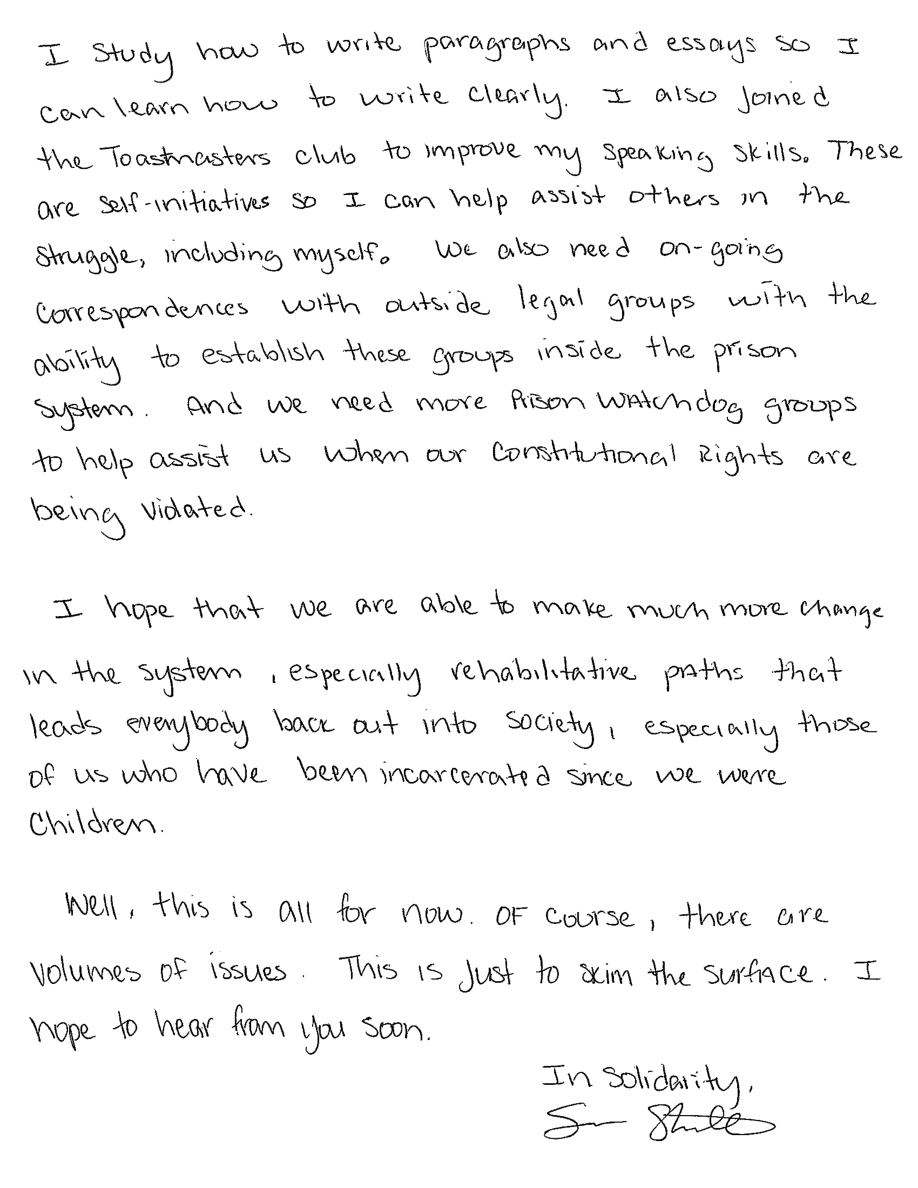 I study how to write paragraphs and essays so I
can learn how to write clearly. I also joined
the Toastmasters club to improve my speaking skills. These
are self-initiatives so I can help assist others in the
struggle, including myself. We also need on-going
correspondences with outside legal groups with the
ability to establish these groups inside the prison
system. And we need more Prison WAtchdog groups
to help assist us when our Constitutional Rights are
being violated.
I hope that we are able to make much more change
in the system, especially rehabilitative pAths that
leads everybody back out into society, especially those
of us who have been incarcerated since we were
Children.
Well, this is all for now. OF course, there are
volumes of issues. This is just to skim the surfAce. I
hope to hear from you soon.
In Solidarity,